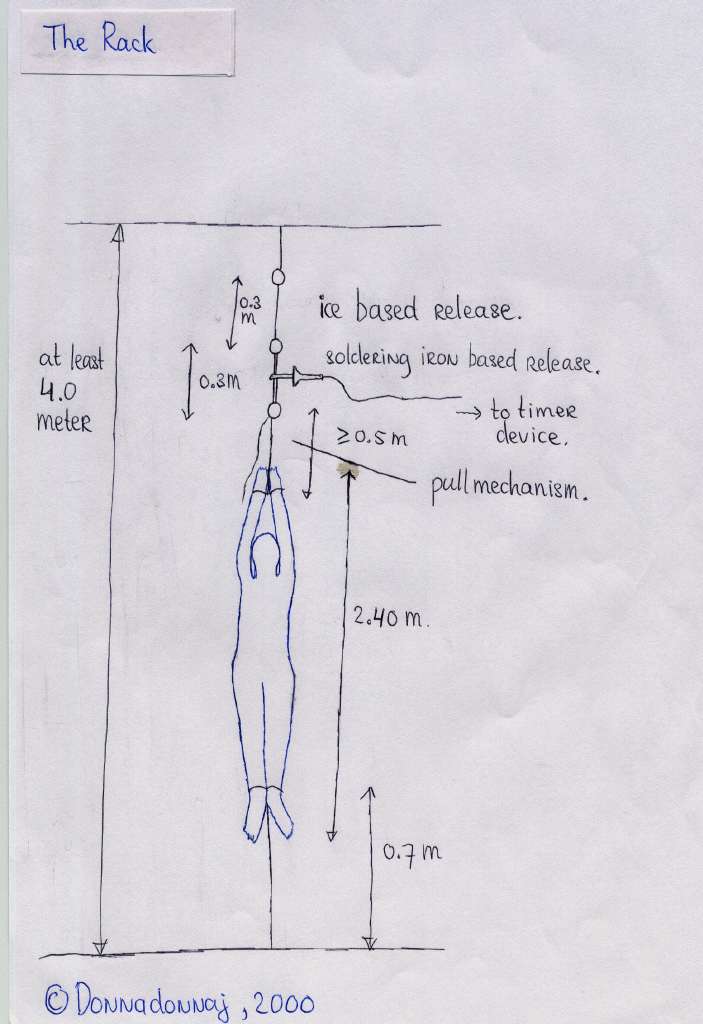 The Rack
ice based release.
0.3
m
soldering iron based release.
at least
4.0
meter
0.3m
→ to timer
device.
≥0.5m
pull mechanism.
2.40 m.
0.7 m
© Donnadonnaj, 2000